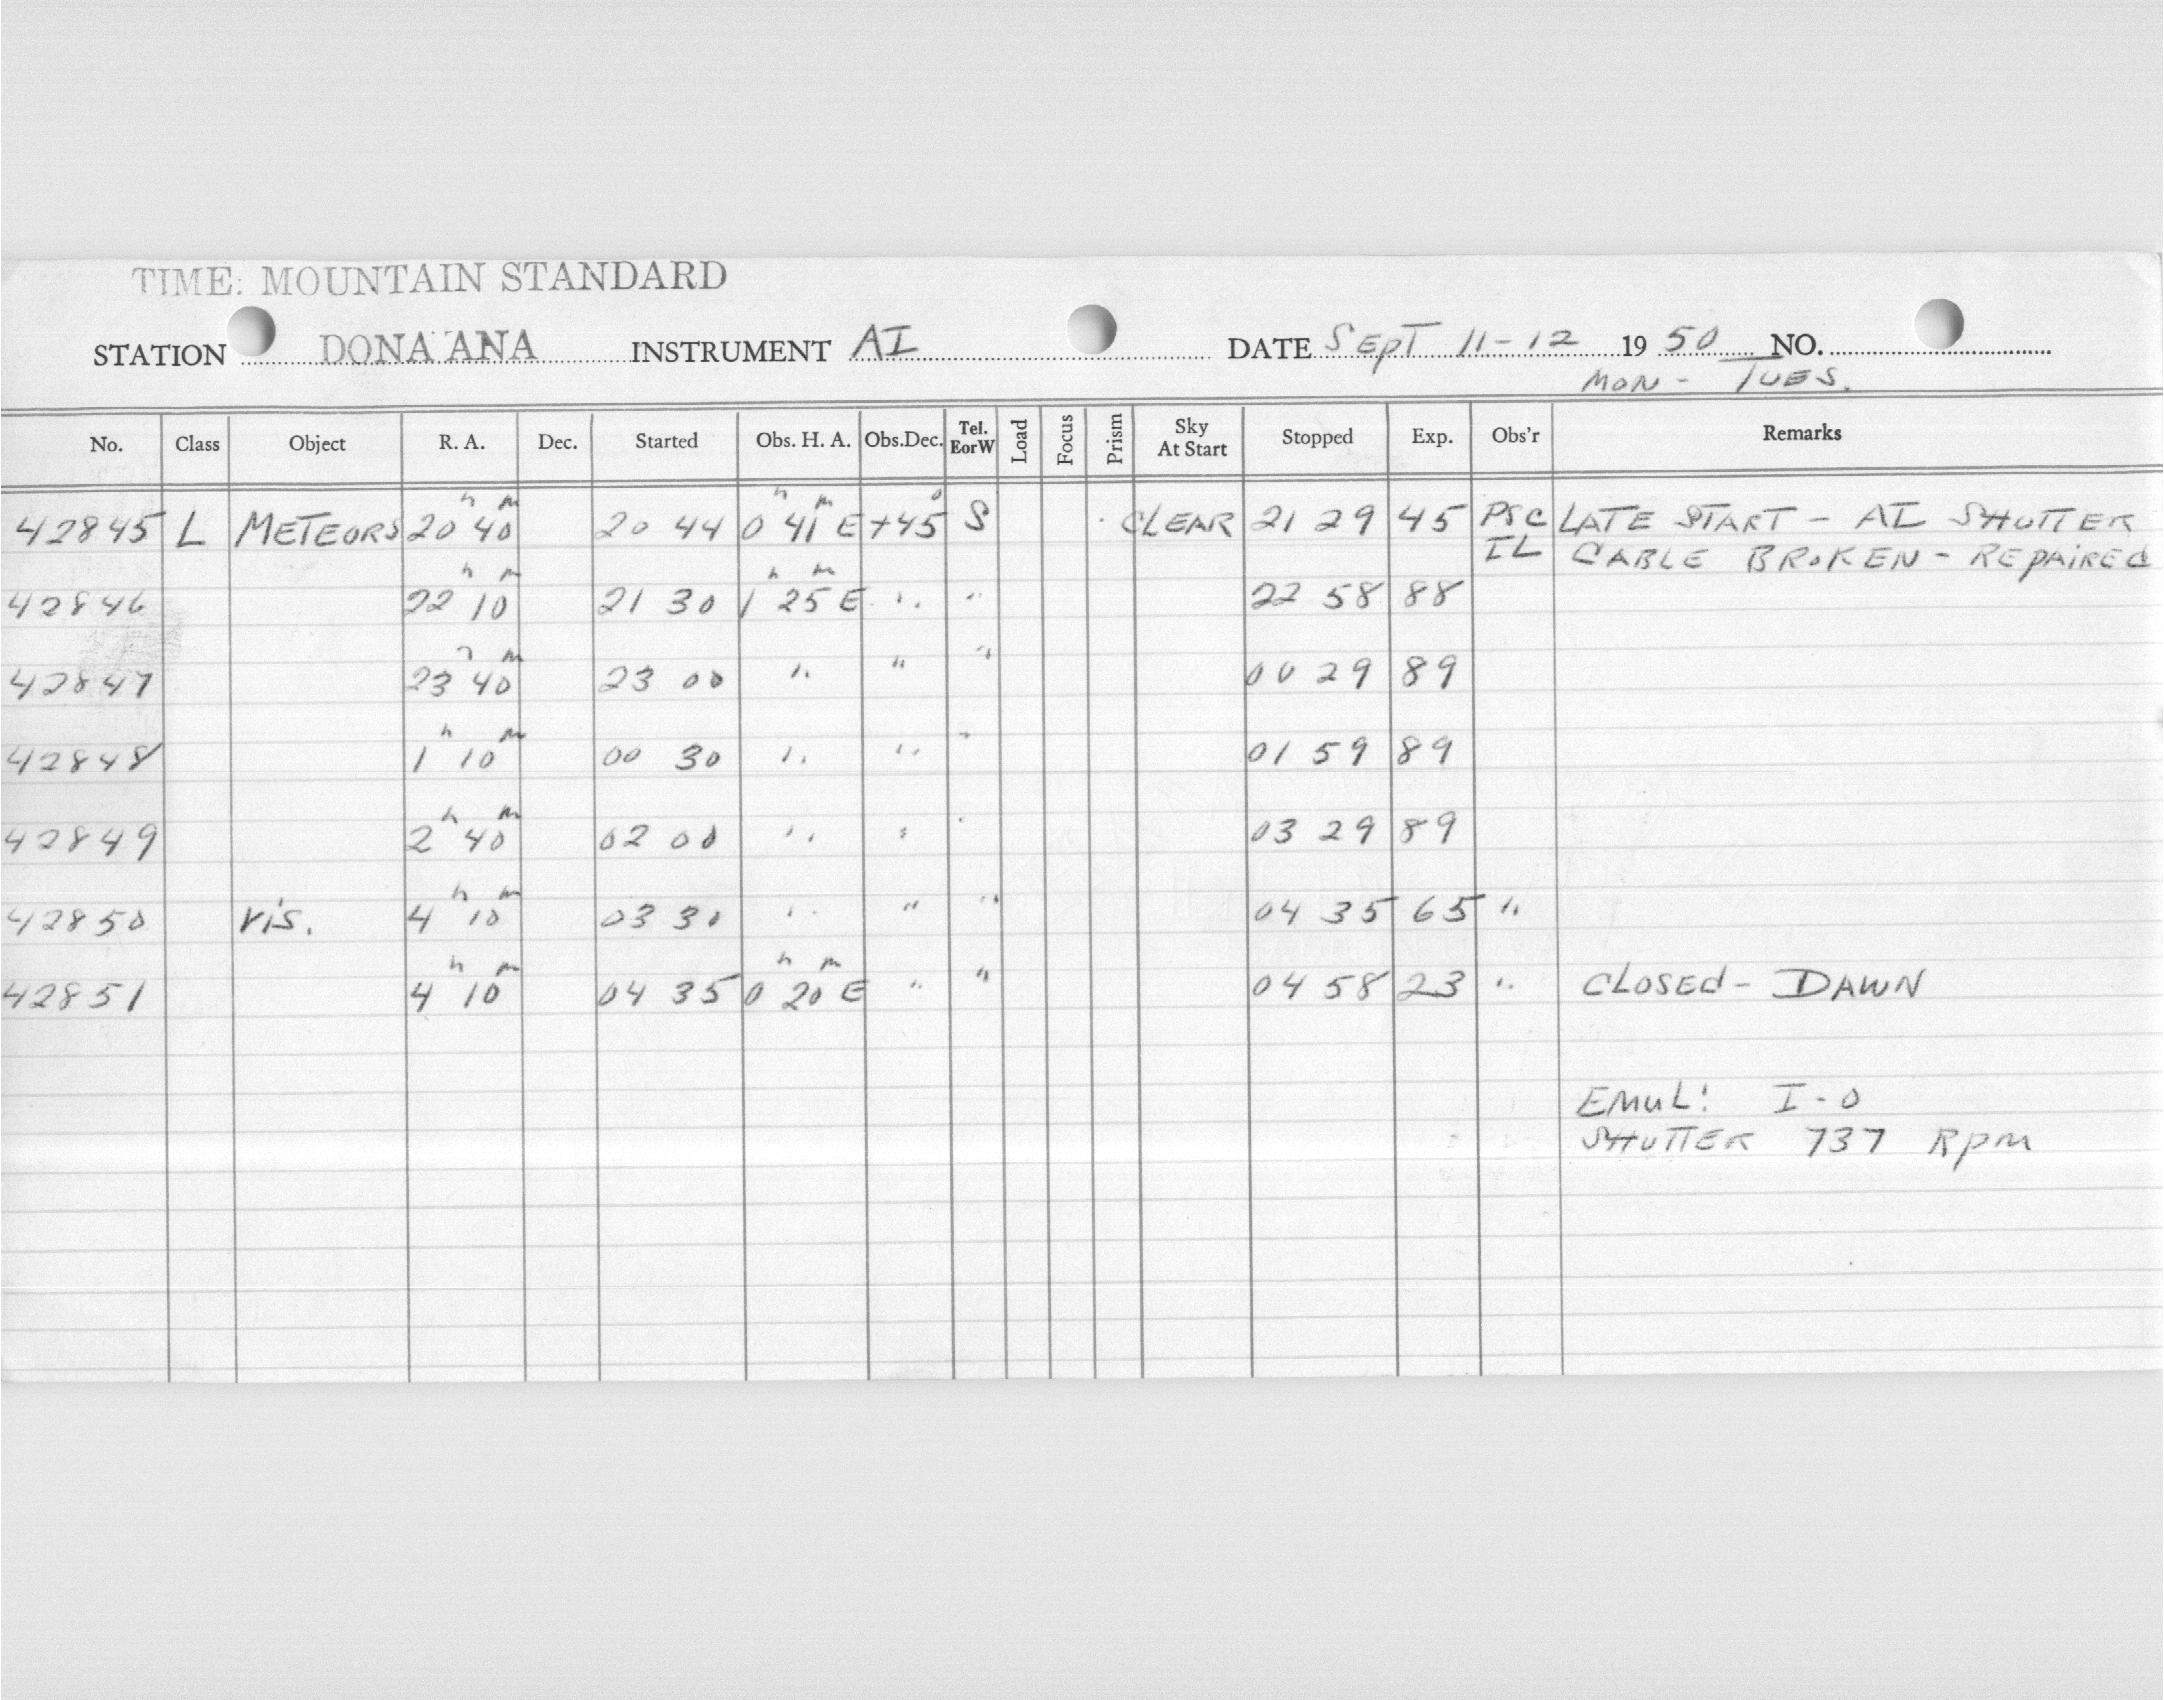 TIME: MOUNTAIN STANDARD
STATION DONA ANA INSTRUMENT AI DATE SEPT 11-12 1950 NO.
MON - TUES.
No. Class Object R. A. Dec. Started Obs. H. A. Obs.Dec. Tel. EorW Load Focus Prism Sky At Start Stopped Exp. Obs'r Remarks
42845 L METEORS 20h 40m 20 44 0h 41m E +45° S CLEAR 21 29 45 PSC LATE START - AI SHUTTER
IL CABLE BROKEN - REPAIRED
42846 22h 10m 21 30 1h 25m E " " 22 58 88
42847 23h 40m 23 00 " " " 00 29 89
42848 1h 10m 00 30 " " " 01 59 89
42849 2h 40m 02 00 " " " 03 29 89
42850 vis. 4h 10m 03 30 " " " 04 35 65 "
42851 4h 10m 04 35 0h 20m E " " 04 58 23 " CLOSED - DAWN
EMUL: I-O
SHUTTER 737 RPM